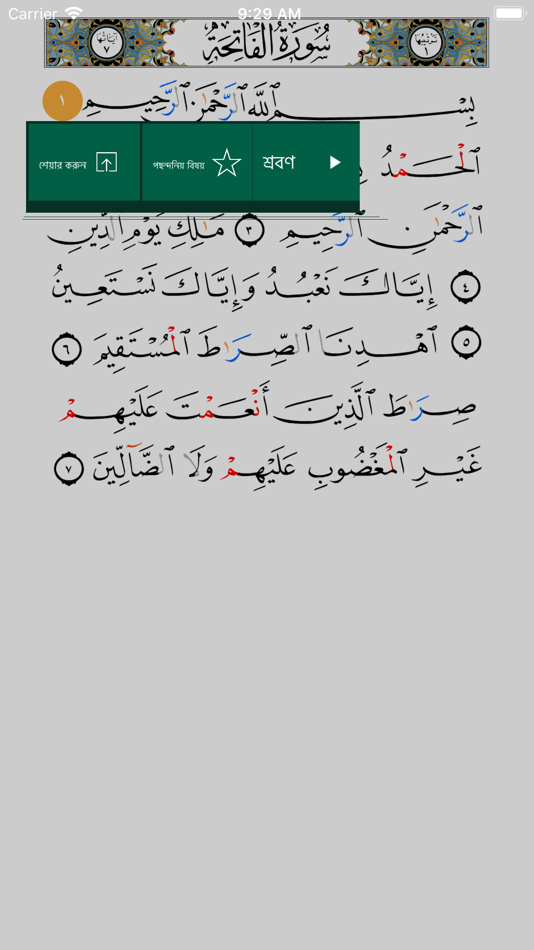 Carrier 9:29 AM
آيَاتُهَا ٧ سُورَةُ الْفَاتِحَةِ تَرْتِيبُهَا ١
بِسْمِ ٱللَّهِ ٱلرَّحْمَٰنِ ٱلرَّحِيمِ ١
ٱلْحَمْدُ
শেয়ার করুন পছন্দনিয় বিষয় শ্রবণ
ٱلرَّحْمَٰنِ ٱلرَّحِيمِ ٣ مَٰلِكِ يَوْمِ ٱلدِّينِ
٤ إِيَّاكَ نَعْبُدُ وَإِيَّاكَ نَسْتَعِينُ
٥ ٱهْدِنَا ٱلصِّرَٰطَ ٱلْمُسْتَقِيمَ ٦
صِرَٰطَ ٱلَّذِينَ أَنْعَمْتَ عَلَيْهِمْ
غَيْرِ ٱلْمَغْضُوبِ عَلَيْهِمْ وَلَا ٱلضَّآلِّينَ ٧